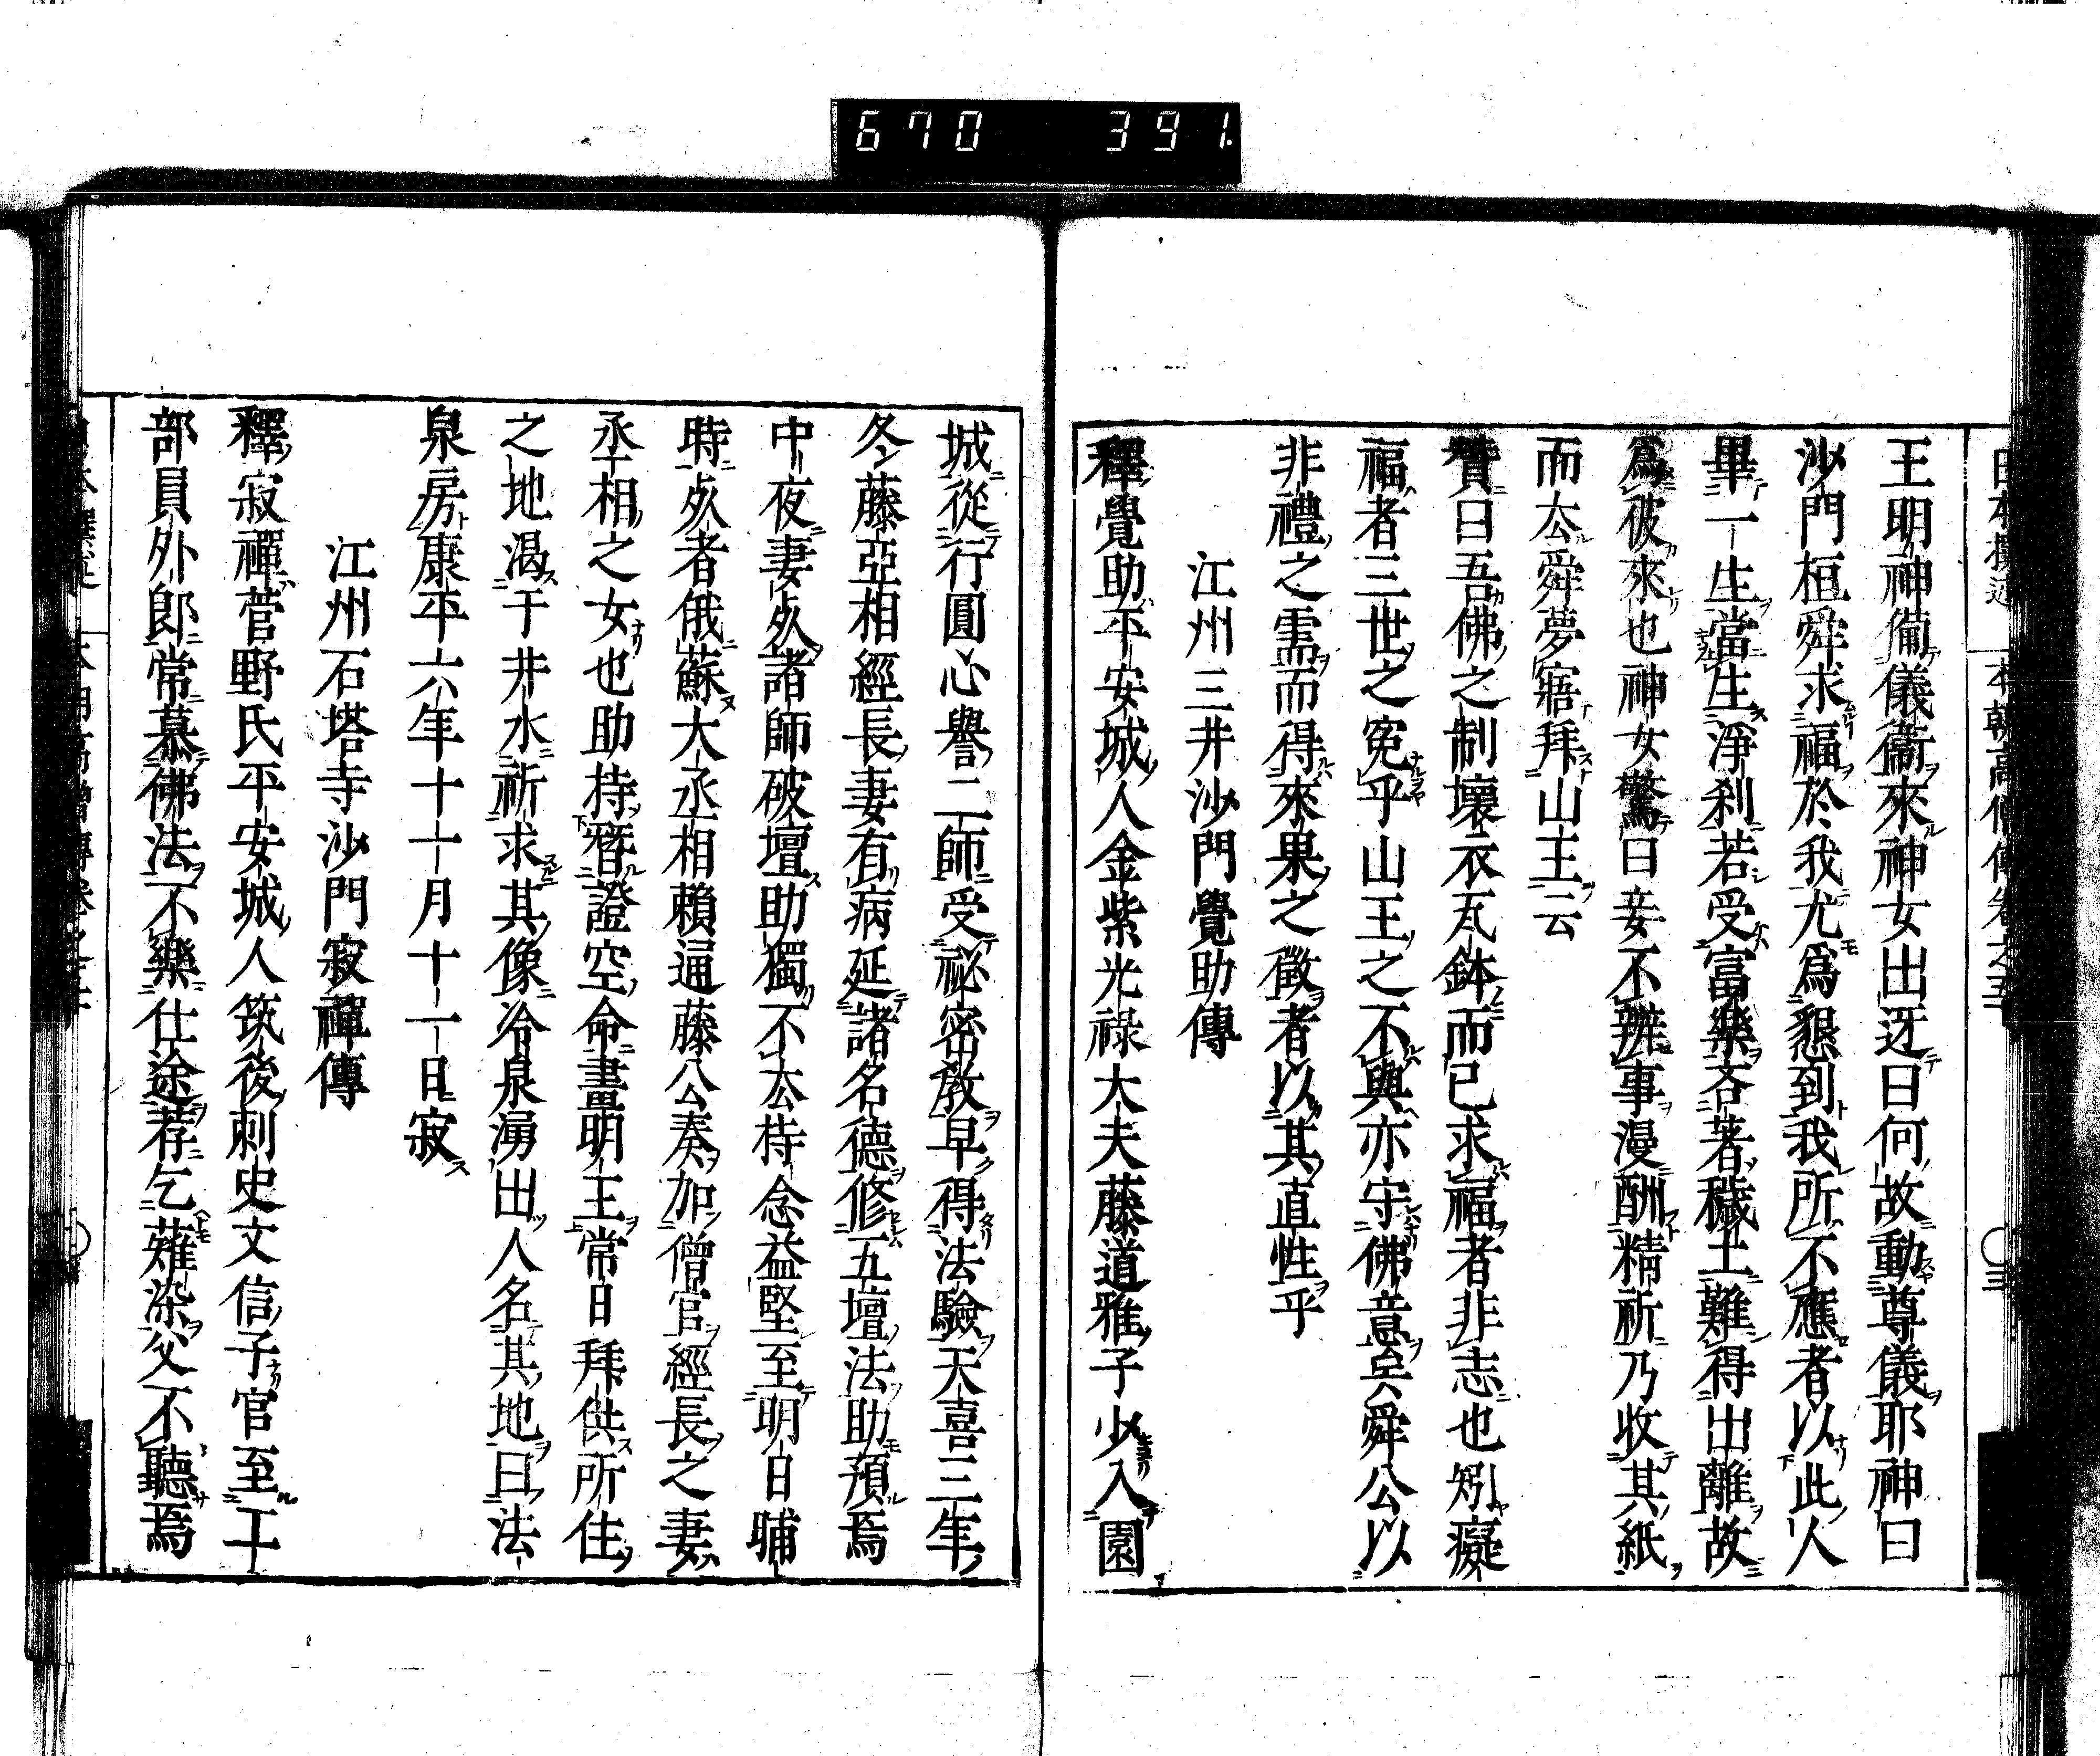 670 391
王明神備儀衞來神女出迓曰何故動尊儀耶神曰
沙門桓舜求福於我尤爲懇到我所不應者以此人
畢一生當生淨刹若受富樂吝著穢土難得出離故
爲彼來也神女驚曰妾不辨事漫酬精祈乃收其紙
而厺舜夢寤拜山王云
賛曰吾佛之制壞衣瓦鉢而已求福者非志也矧癡
福者三世之寃乎山王之不與亦守佛意矣舜公以
非禮之需而得來果之徵者以其直性乎
江州三井沙門覺助傳
釋覺助平安城人金紫光祿大夫藤道雅子少入園
城從行圓心譽二師受祕密敎早得法驗天喜三年
冬藤亞相經長妻有病延諸名德修五壇法助預焉
中夜妻㱕諸師破壇助獨不厺持念益堅至明日晡
時㱕者俄蘇大丞相賴通藤公奏加僧官經長之妻
丞相之女也助持智證空命畫明王常日拜供所住
之地渴于井水祈求其像冷泉湧出人名其地曰法
泉房康平六年十一月十一日寂
江州石塔寺沙門寂禪傳
釋寂禪菅野氏平安城人筑後刺史文信子官至工
部員外郞常慕佛法不樂仕途荐乞薙染父不聽焉